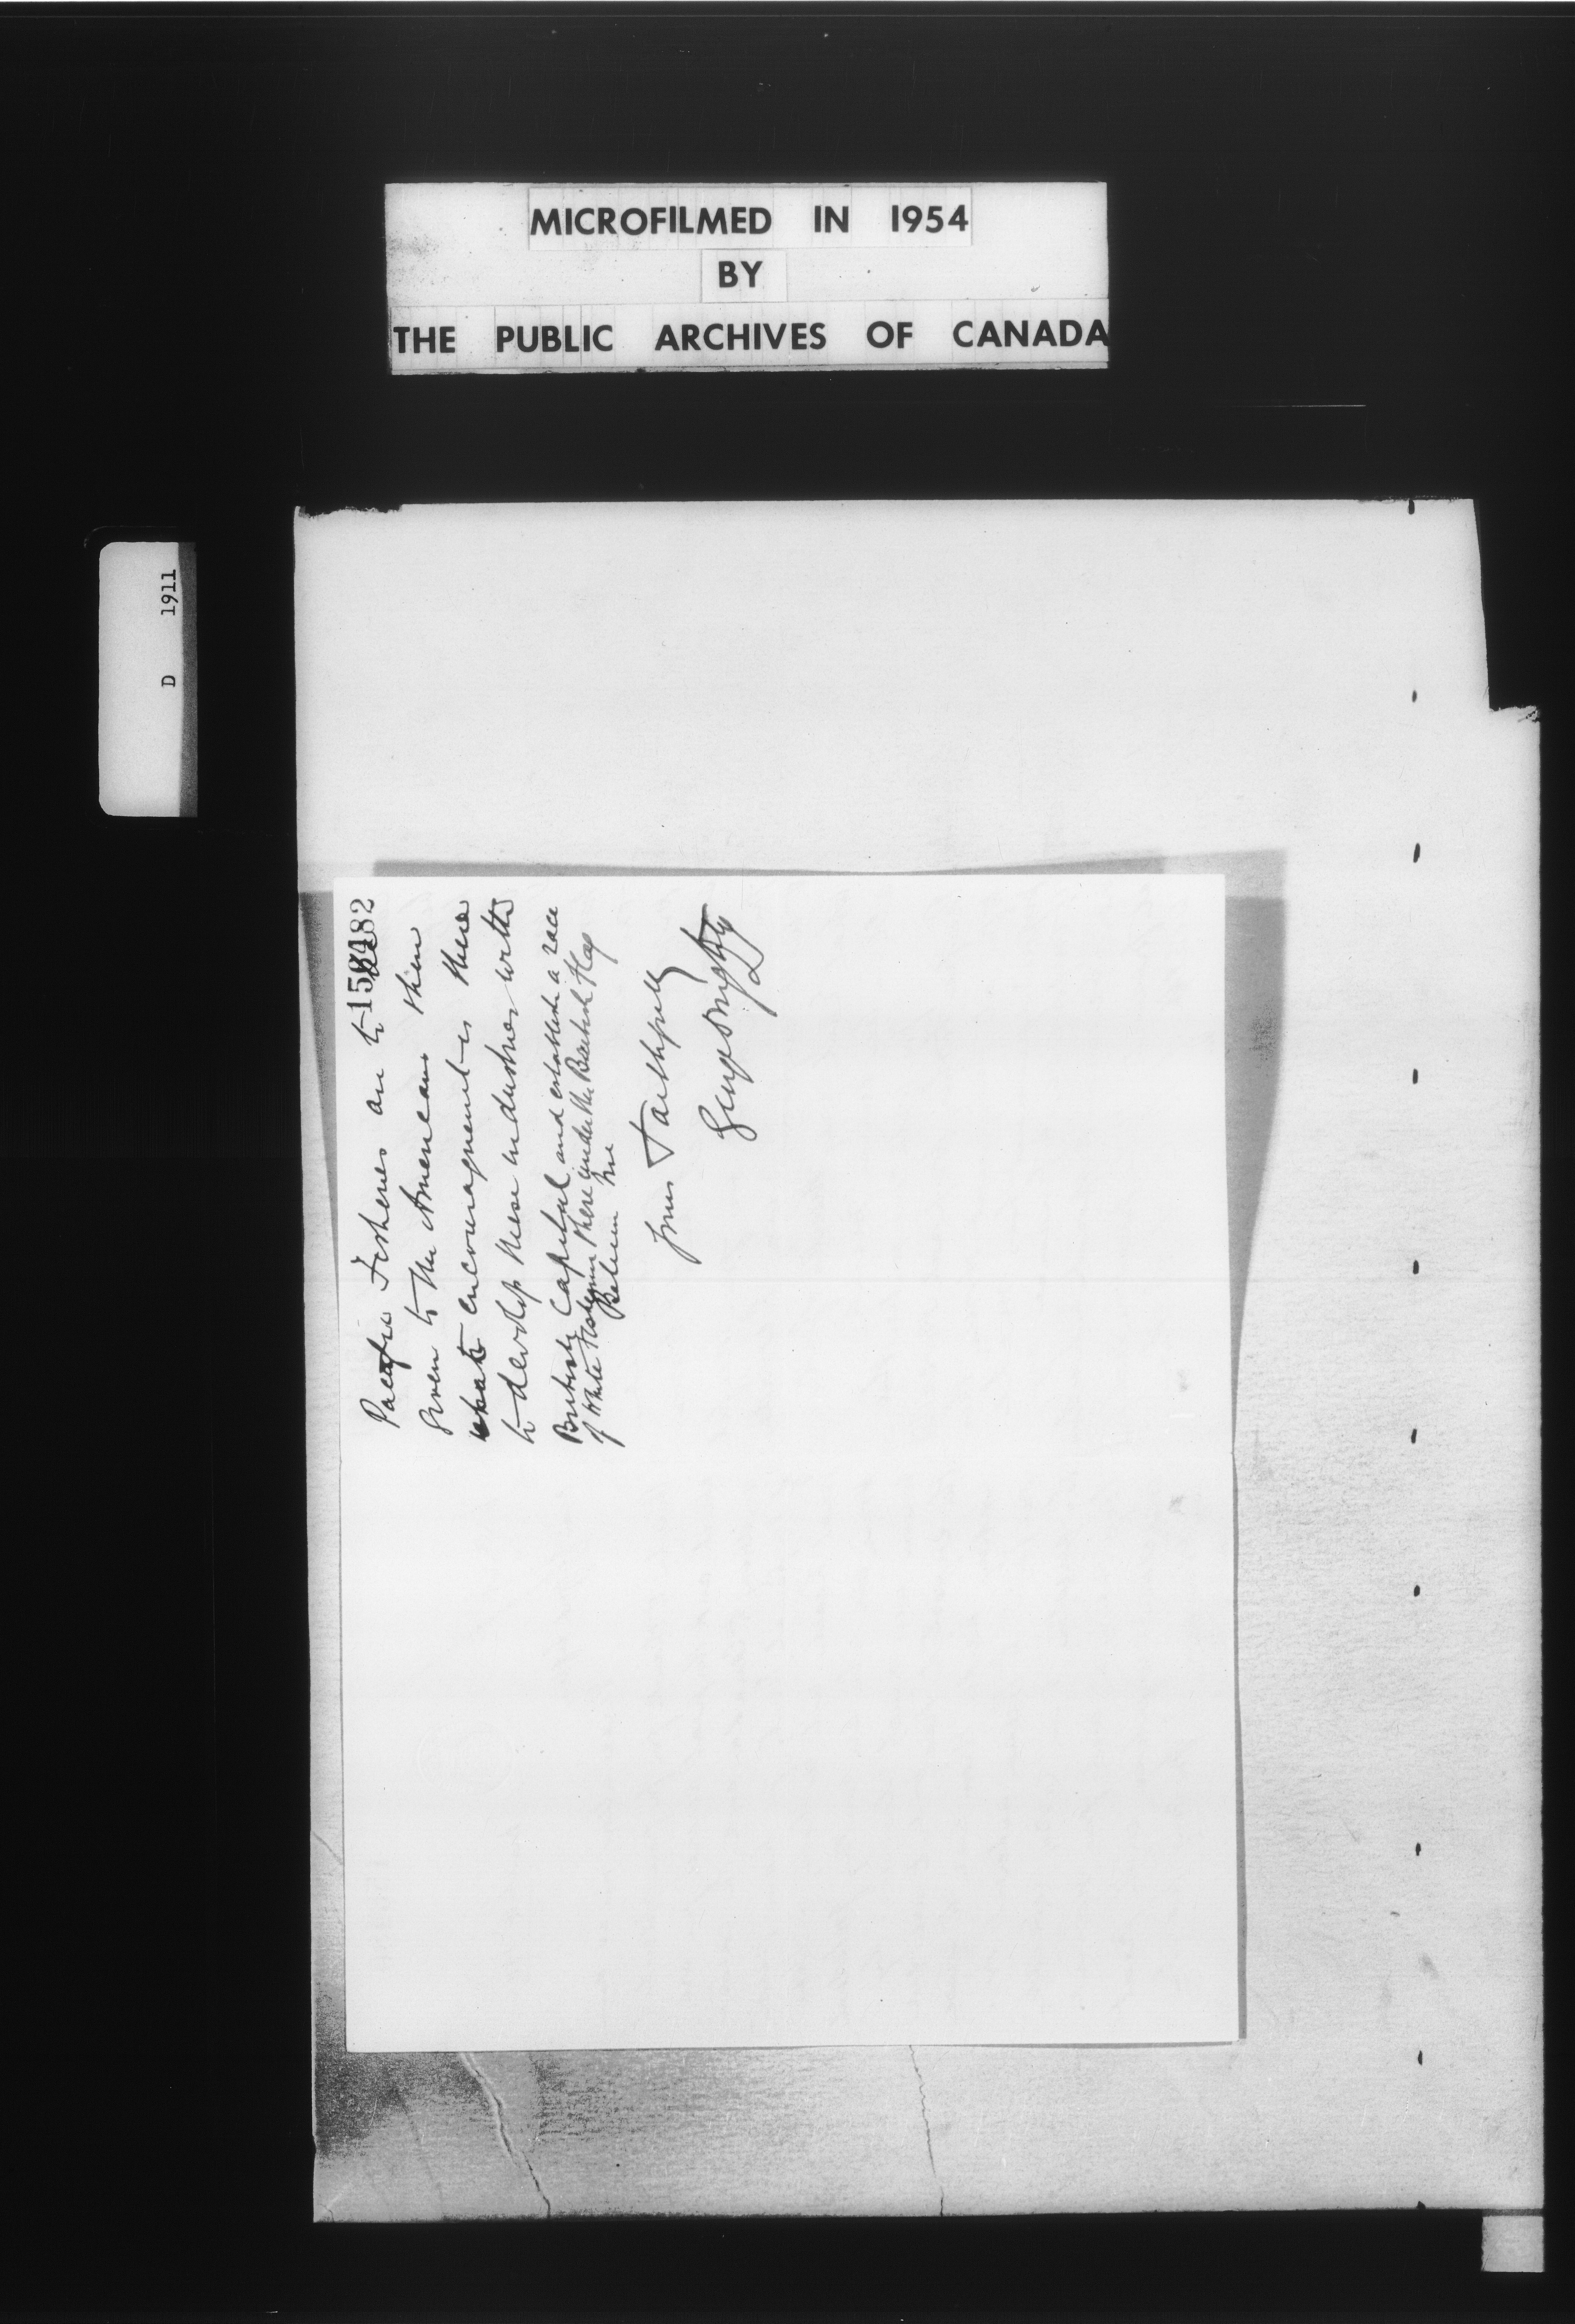 MICROFILMED IN 1954
BY
THE PUBLIC ARCHIVES OF CANADA
D 1911
Pacific Fisheries are to be
given to the Americans then
what encouragement is there
to develop these industries with
British Capital and establish a race
of White Fishermen there under the British Flag
Believe me
yours Faithfully
George